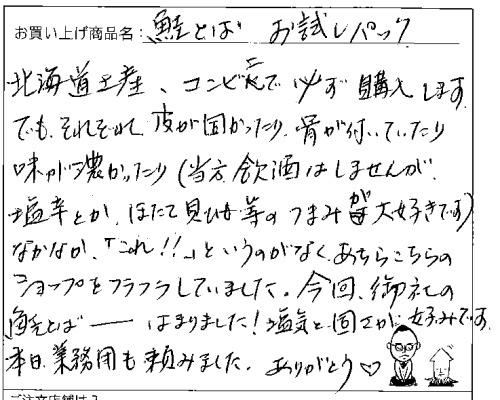 お買い上げ商品名：鮭とば お試しパック
北海道土産、コンビニ等で必ず購入します。
でも、それぞれ皮が固かったり、骨が付いていたり
味が濃かったり（当方飲酒はしませんが、
塩辛とか、ほたて貝ひも等のつまみが大好きです）
なかなか、「これ!!」というのがなく、あちらこちらの
ショップをフラフラしていました。今回、御社の
鮭とば――はまりました！塩気と固さが好みです。
本日、業務用も頼みました。ありがとう♡
ご注文店舗は？